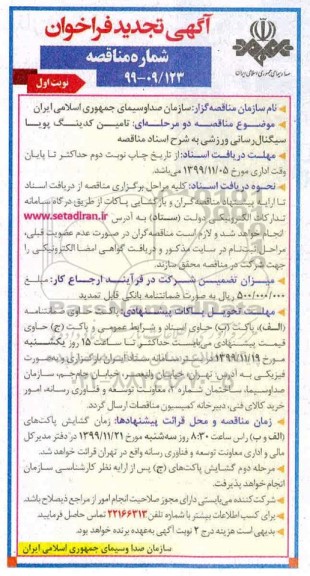 آگهی تجدید فراخوان
شماره مناقصه
۹۹-۰۹/۱۲۳
نوبت اول
صدا وسیمای جمهوری اسلامی ایران
نام سازمان مناقصه‌گزار: سازمان صداوسیمای جمهوری اسلامی ایران
موضوع مناقصه دو مرحله‌ای: تامین کدینگ پویا
سیگنال‌رسانی ورزشی به شرح اسناد مناقصه
مهلت دریافت اسناد: از تاریخ چاپ نوبت دوم حداکثر تا پایان
وقت اداری مورخ ۱۳۹۹/۱۱/۰۵ می‌باشد.
نحوه دریافت اسناد: کلیه مراحل برگزاری مناقصه از دریافت اسناد
تا ارایه پیشنهاد مناقصه گران و بازگشایی پاکات از طریق درگاه سامانه
تدارکات الکترونیکی دولت (ستاد) به آدرس www.setadiran.ir
انجام خواهد شد و لازم است مناقصه گران در صورت عدم عضویت قبلی،
مراحل ثبت‌نام در سایت مذکور و دریافت گواهی امضا الکترونیکی را
جهت شرکت در مناقصه محقق سازند.
میزان تضمین شرکت در فرآیند ارجاع کار: مبلغ
۵۰۰/۰۰۰/۰۰۰ ریال به صورت ضمانتنامه بانکی قابل تمدید
مهلت تحویل پاکات پیشنهادی: پاکت (الف) حاوی ضمانتنامه
پاکت (ب) حاوی اسناد و شرایط عمومی و پاکت (ج) حاوی
قیمت پیشنهادی می‌بایست حداکثر تا ساعت ۱۵ روز یکشنبه
مورخ ۱۳۹۹/۱۱/۱۹ در بستر سامانه ستاد ایران بارگزاری و بصورت
فیزیکی به آدرس تهران، خیابان ولیعصر، خیابان جام‌جم، سازمان
صداوسیما، ساختمان شماره ۲، معاونت توسعه و فناوری رسانه، امور
خرید کالای فنی، دبیرخانه کمیسیون مناقصات ارسال گردد.
زمان مناقصه و محل قرائت پیشنهادها: زمان گشایش پاکت‌های
(الف و ب) راس ساعت ۸:۳۰ روز سه‌شنبه مورخ ۱۳۹۹/۱۱/۲۱ در دفتر مدیر کل
مالی و اداری معاونت توسعه و فناوری رسانه واقع در تهران قرائت خواهد شد.
مرحله دوم گشایش پاکت‌های (ج) پس از ارایه نظر کارشناسی سازمان
انجام خواهد پذیرفت.
شرکت کننده می‌بایستی دارای مجوز صلاحیت انجام امور از مراجع ذیصلاح باشد.
برای کسب اطلاعات بیشتر با شماره تلفن ۲۲۱۶۶۳۱۳ تماس حاصل فرمایید.
بدیهی است هزینه درج ۲ نوبت آگهی به‌عهده برنده خواهد بود.
سازمان صدا وسیمای جمهوری اسلامی ایران